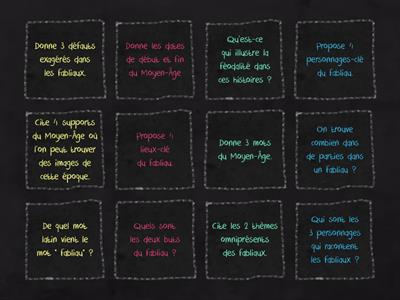 Donne 3 défauts
exagérés dans
les fabliaux.
Donne les dates
de début et fin
du Moyen-Âge
Qu'est-ce
qui illustre la
féodalité dans
ces histoires ?
Propose 4
personnages-clé
du fabliau.
Cite 4 supports
du Moyen-Âge où
l'on peut trouver
des images de
cette époque.
Propose 4
lieux-clé
du fabliau.
Donne 3 mots
du Moyen-Âge.
On trouve
combien dans
de parties dans
un fabliau ?
De quel mot
latin vient le
mot " fabliau" ?
Quels sont
les deux buts
du fabliau ?
Cite les 2 thèmes
omniprésents
des fabliaux.
Qui sont les
3 personnages
qui racontent
les fabliaux ?